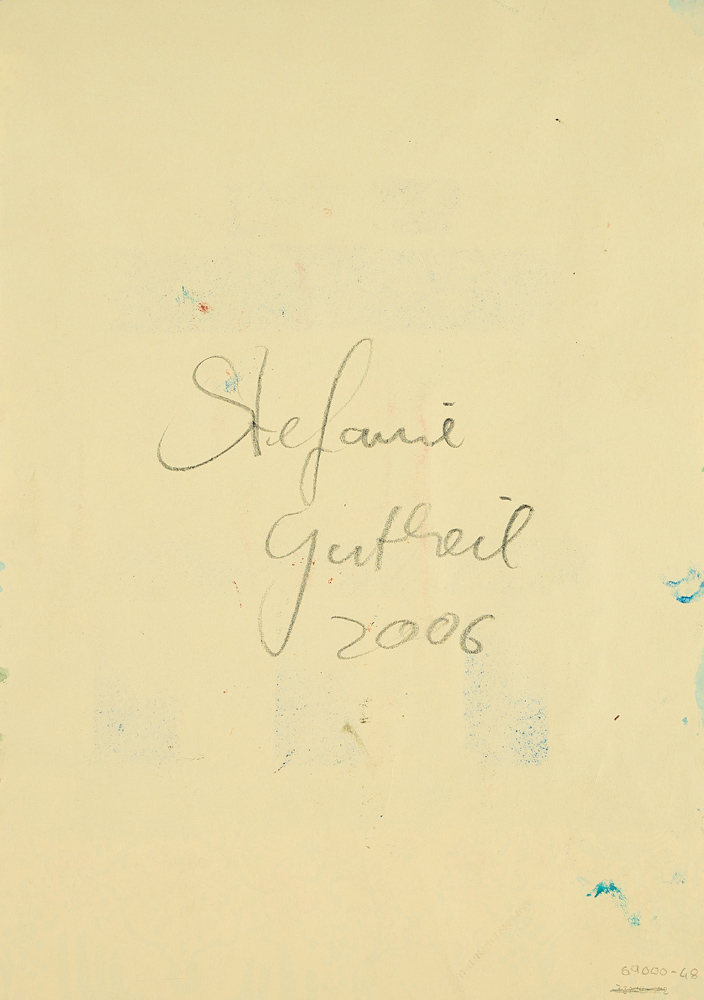 Stefanie
Gutheil
2006
69000-48